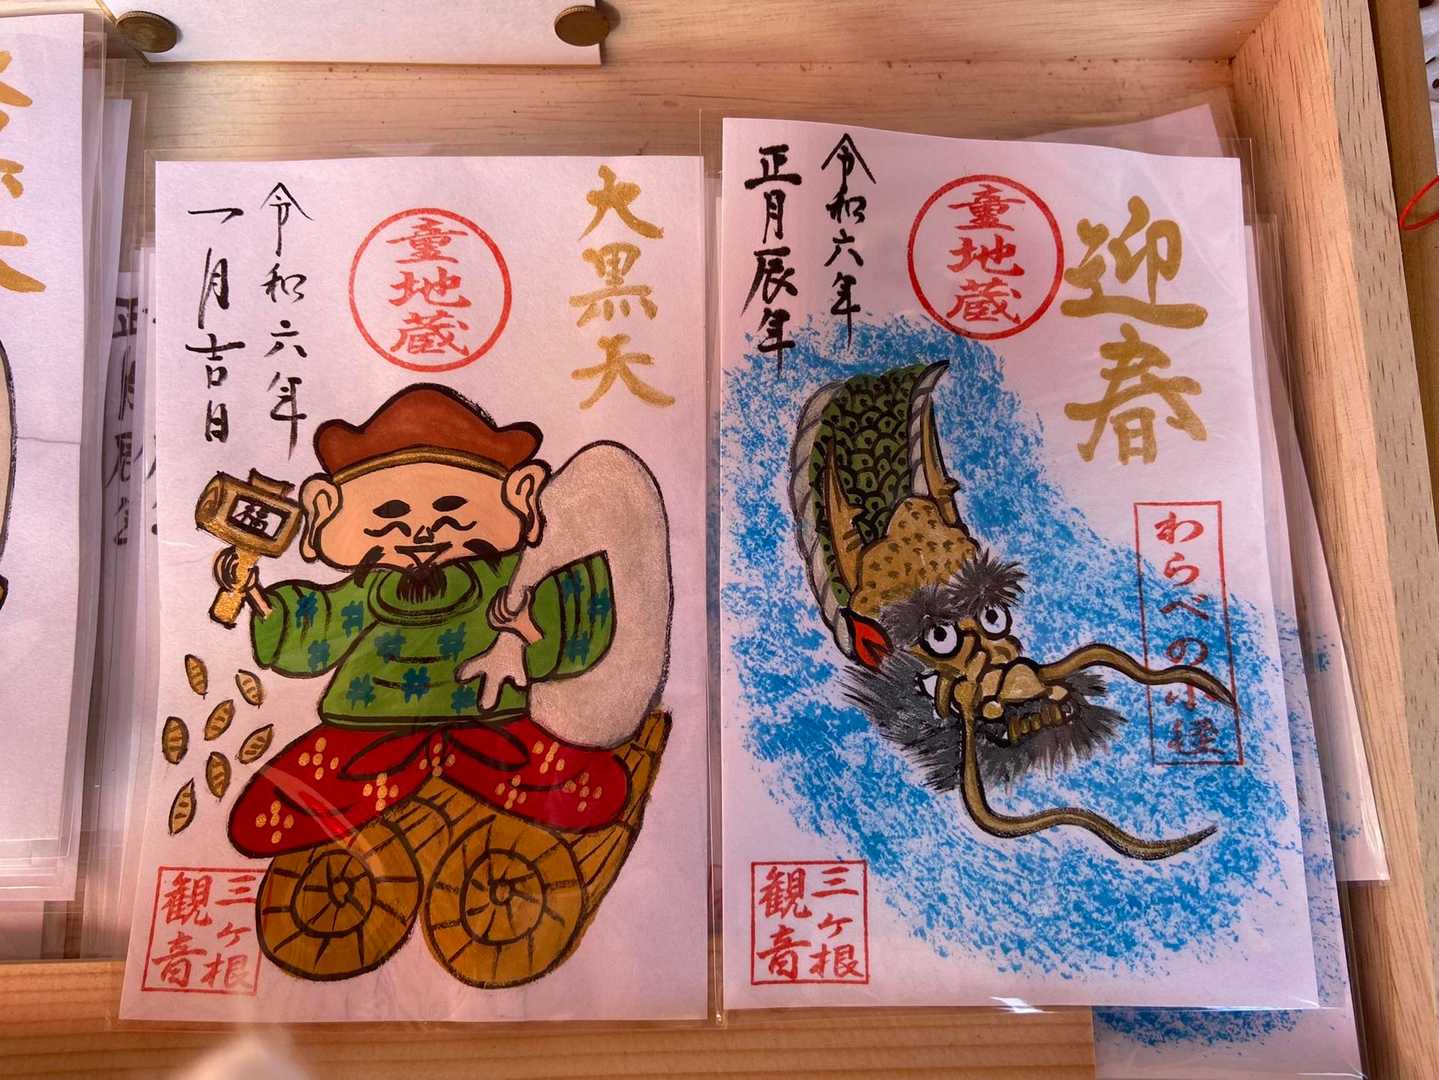 大黒天
童地蔵
令和六年
一月吉日
福
三ヶ根
観音
迎春
童地蔵
令和六年
正月辰年
わらべの小径
三ヶ根
観音